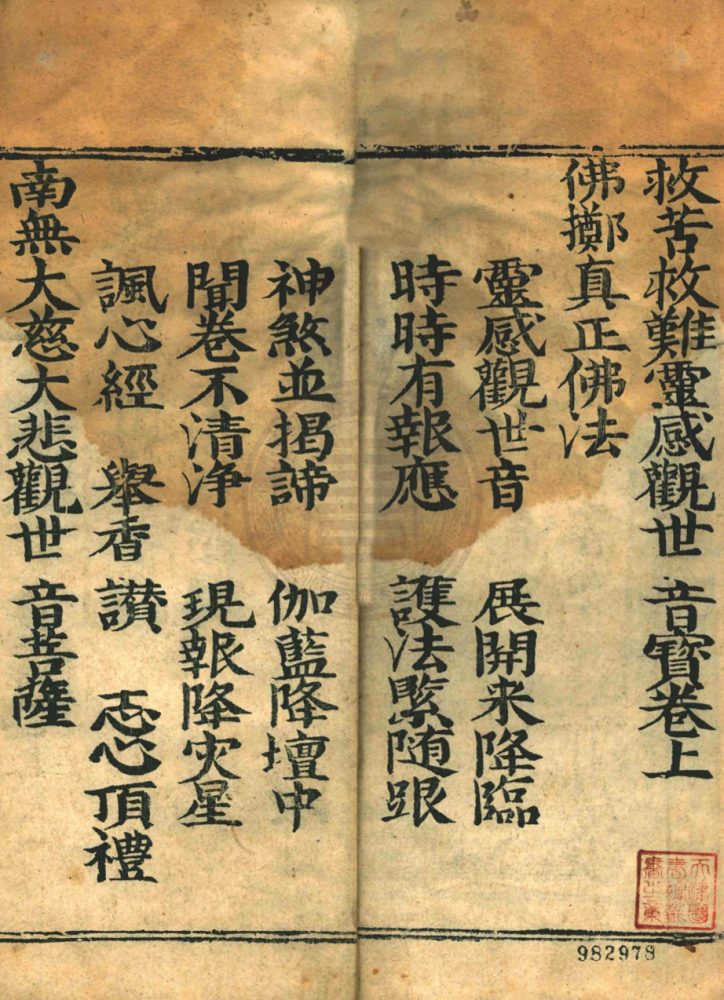 救苦救難靈感觀世音寶卷上
佛擲真正佛法
靈感觀世音 展開来降臨
時時有報應 護法緊随跟
神煞並揭諦 伽藍降壇中
聞卷不清净 現報降灾星
諷心經 舉香讃 志心頂禮
南無大慈大悲觀世音菩薩
982978